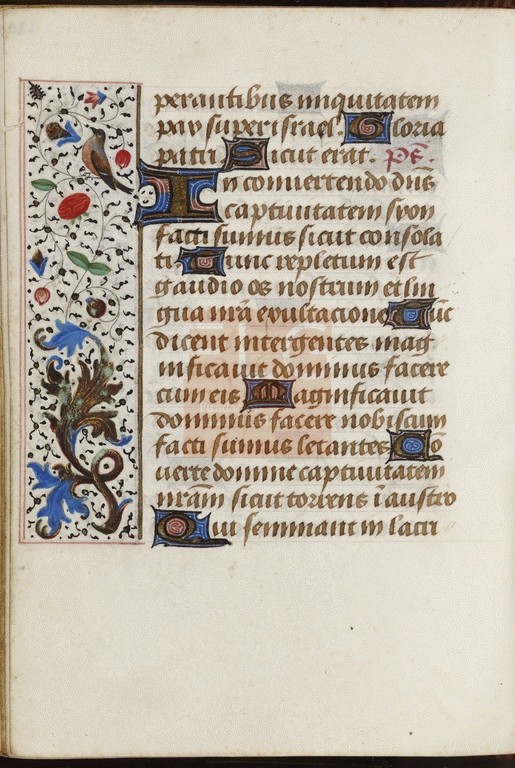 perantibus iniquitatem
pax super israel. Gloria
patri Sicut erat. ps.
In convertendo dn̄s
captivitatem syon
facti sumus sicut consola
ti. Tunc repletum est
gaudio os nostrum et lin
gua nr̄a exultacione Tūc
dicent inter gentes mag
nificavit dominus facere
cum eis Magnificavit
dominus facere nobiscum
facti sumus letantes Cō
verte domine captivitatem
nr̄am sicut torrens ī austro
Qui seminant in lacri